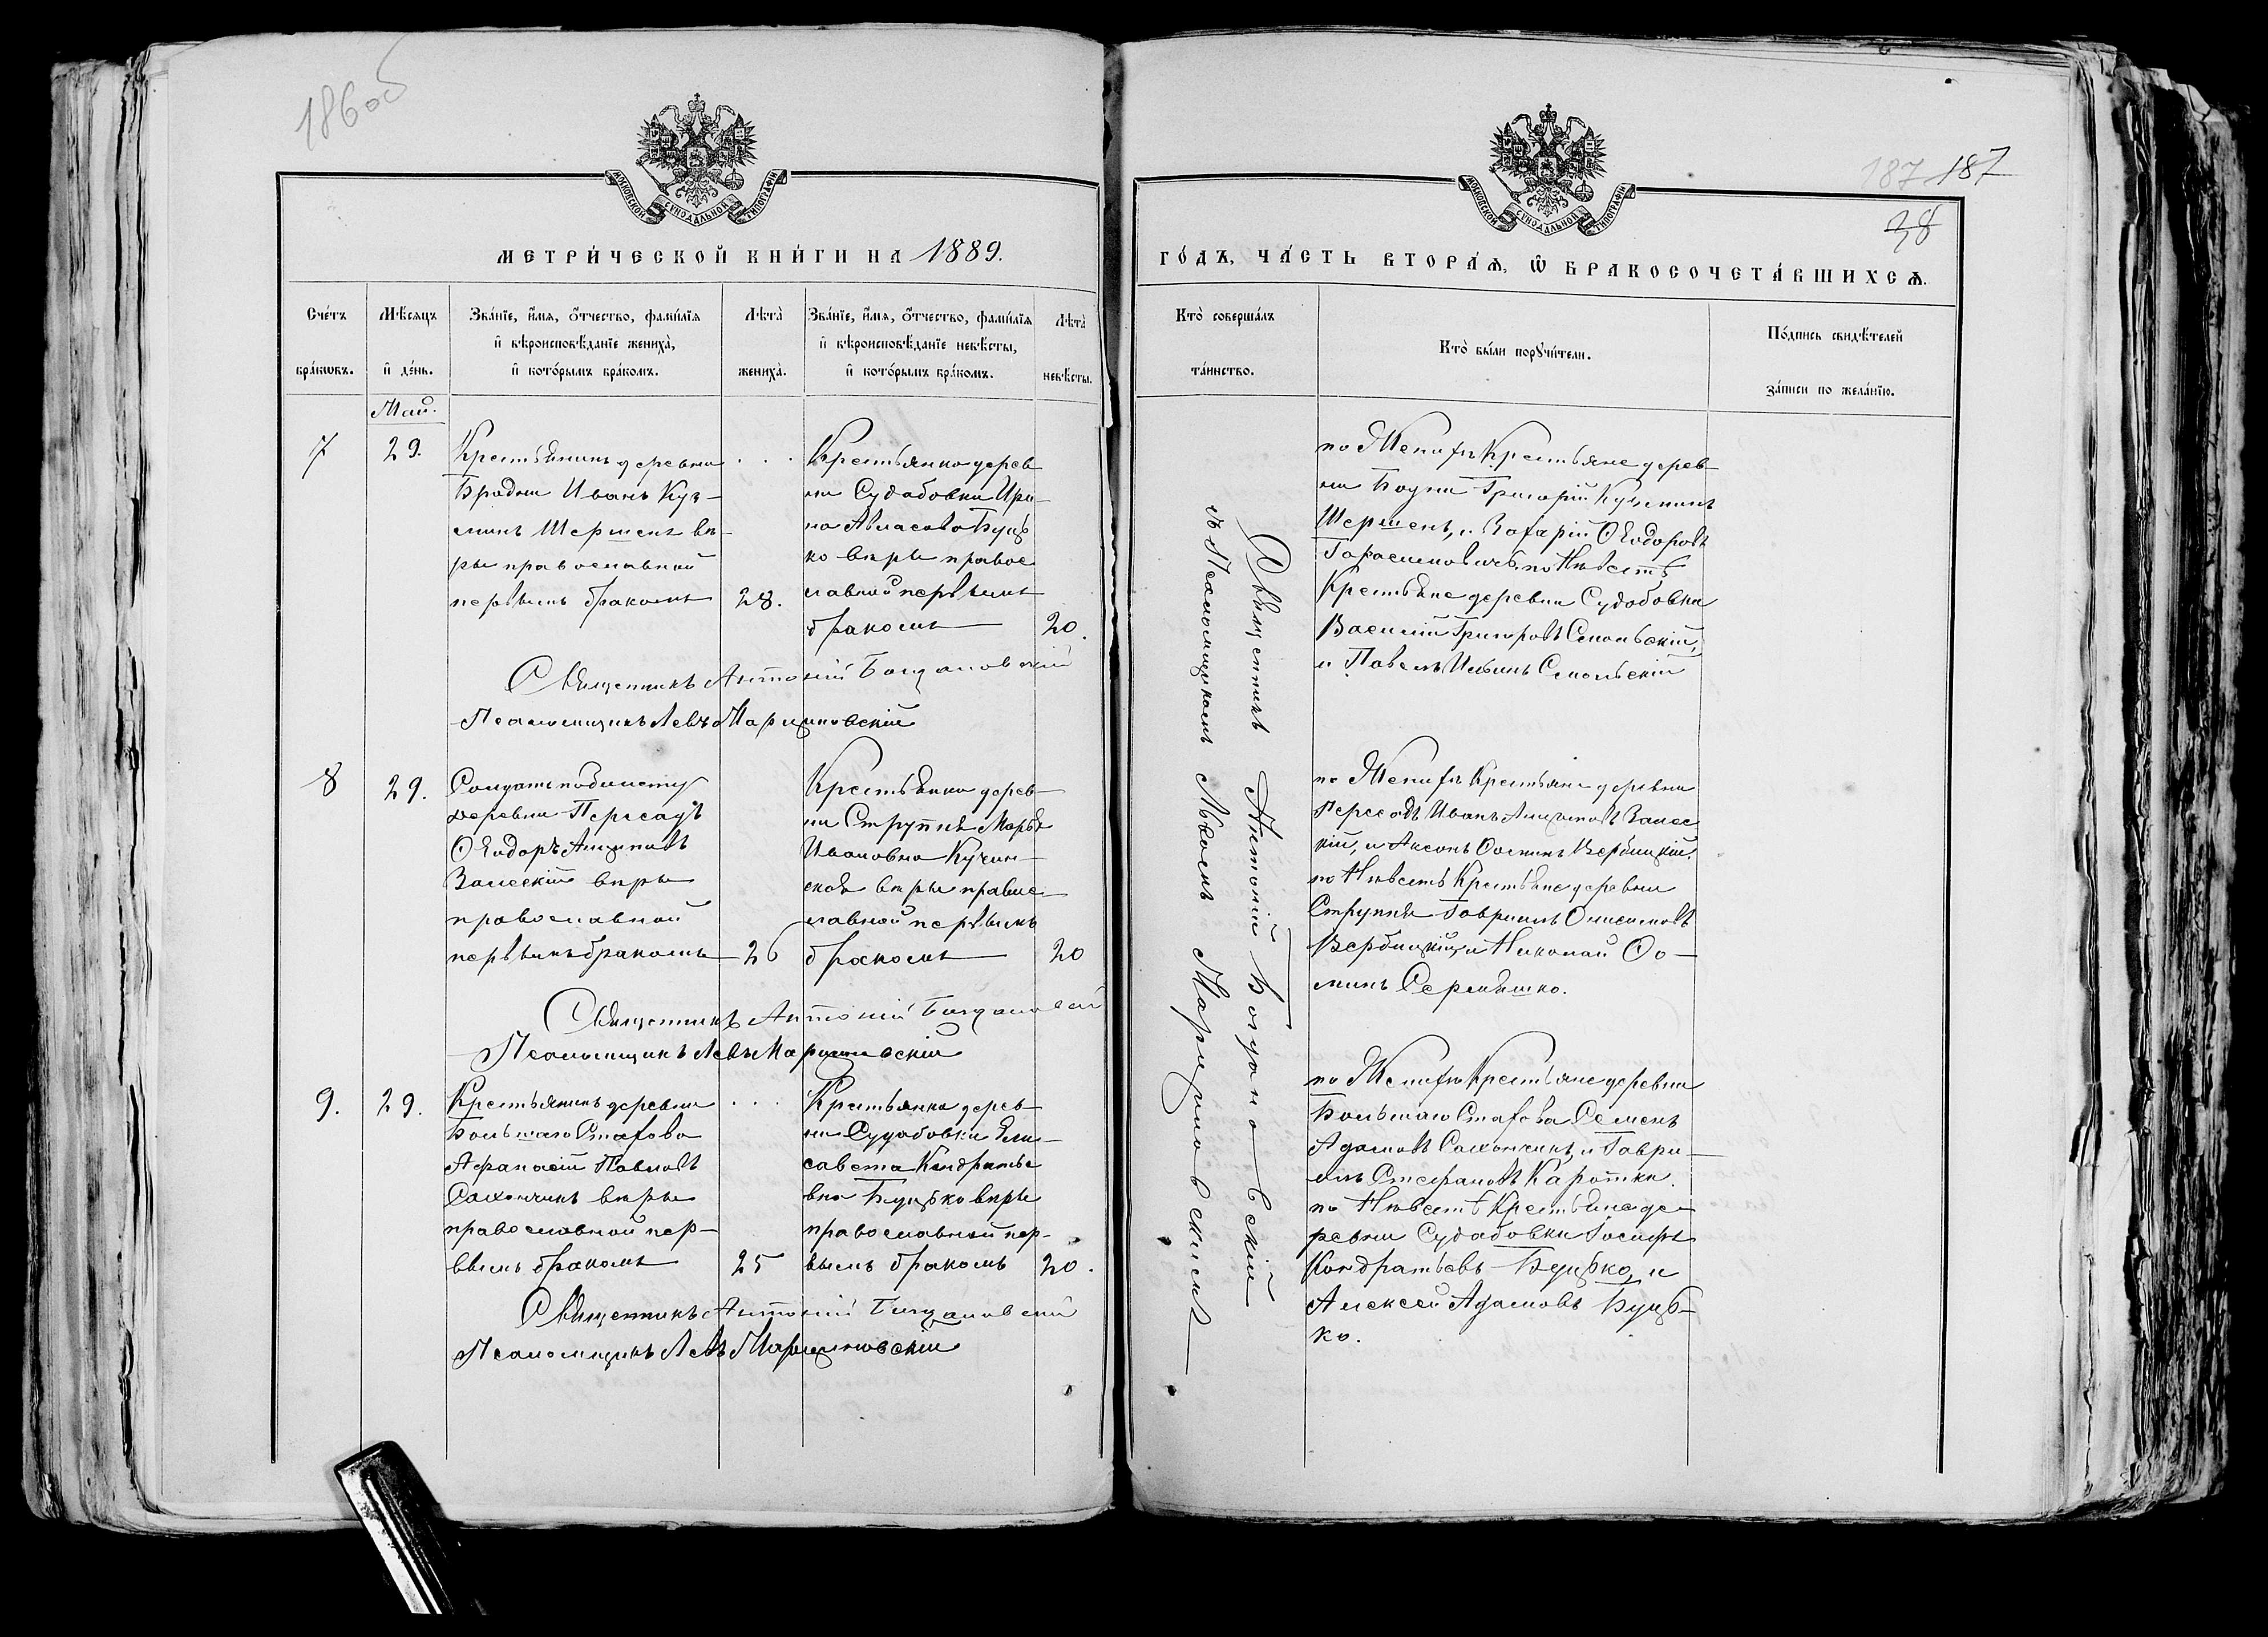 186 об
МОСКОВСКОЙ СѴНОДАЛЬНОЙ ТИПОГРАФІИ
МЕТРИ́ЧЕСКОЙ КНИ́ГИ НА 1889.
Сче́тъ бра́кѡвъ.
Мѣ́сяцъ и҆ де́нь.
Зва́нїе, и҆́мя, ѻ҆́тчество, фами́лїя
и҆ вѣроисповѣ́данїе жениха̀,
и҆ кото́рымъ бра́комъ.
Лѣта̀ жениха̀.
Зва́нїе, и҆́мя, ѻ҆́тчество, фами́лїя
и҆ вѣроисповѣ́данїе невѣ́сты,
и҆ кото́рымъ бра́комъ.
Лѣта̀ невѣ́сты.
Май.
7
29.
Крестьянинъ деревни
Бродни Иванъ Куз-
минъ Шершень вѣ-
ры православной
первымъ бракомъ
28.
Крестьянка дерев
ни Судобовки Ири-
на Авласова Буць
ко вѣры правос
лавной первымъ
бракомъ
20.
Священникъ Антоній Богдановскій
Псаломщикъ Левъ Марциновскій
8
29.
Солдатъ по билету
деревни Пересадъ
Ѳеодоръ Антиповъ
Залескій вѣры
православной
первымъ бракомъ
26
Крестьянка дерев-
ни Струпня Марья
Ивановна Кучин-
ская вѣры правос-
лавной первымъ
бракомъ
20
Священникъ Антоній Богдановскій
Псаломщикъ Левъ Марциновскій
9.
29.
Крестьянинъ деревни
Большаго Стахова
Афанасій Павловъ
Самончикъ вѣры
православной пер-
вымъ бракомъ
25
Крестьянка дерев-
ни Судобовки Ели-
савета Кондратье
вна Буцько вѣры
православной пер-
вымъ бракомъ
20.
Священникъ Антоній Богдановскій
Псаломщикъ Левъ Марциновскій
187 187
38
МОСКОВСКОЙ СѴНОДАЛЬНОЙ ТИПОГРАФІИ
ГО́ДЪ, ЧА́СТЬ ВТОРА́Ѧ, Ѡ҆ БРАКОСОЧЕТА́ВШИХСѦ.
Кто̀ соверша́лъ
та́инство.
Кто̀ бы́ли порꙋчи́тели.
По́дпись свидѣ́телей
за́писи по жела́нїю.
Священникъ Антоній Богдановскій
съ Псаломщикомъ Львомъ Марциновскимъ
по Женихѣ Крестьяне дерев-
ни Бродни Григорій Кузминъ
Шершень, и Захарій Ѳеодоровъ
Герасимовичъ. по Невѣстѣ
Крестьяне деревни Судобовки
Василій Григоровъ Смольскій,
и Павелъ Ильинъ Смольскій
по Женихѣ Крестьяне деревни
Пересадъ Иванъ Антиповъ Залес
кій, и Аксенъ Ѳоминъ Вербицкій.
по Невѣстѣ Крестьяне деревни
Струпня Гавріилъ Онисимовъ
Вербицкій, и Николай Ѳо-
минъ Сермяшко.
по Женихѣ Крестьяне деревни
Большаго Стахова Семенъ
Адамовъ Самончикъ, и Гаври-
илъ Стефановъ Каротки.
по Невѣстѣ Крестьяне де-
ревни Судобовки Іосифъ
Кондратьевъ Буцько, и
Алексей Адамовъ Буць-
ко.